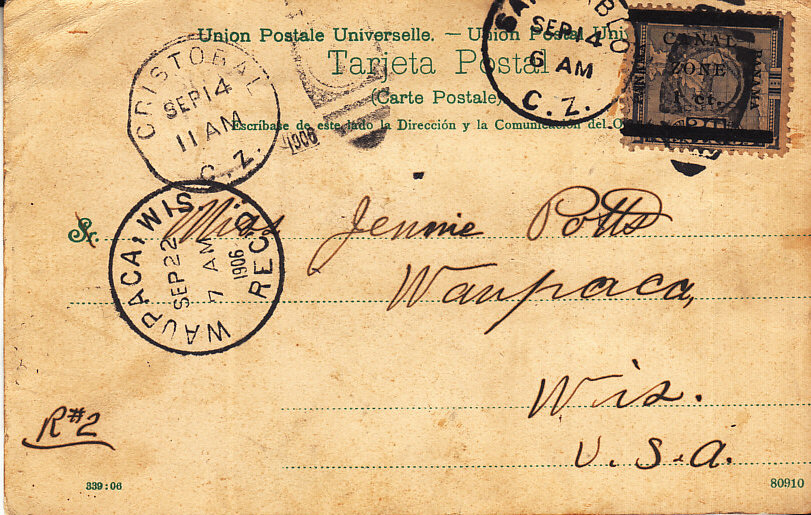 Union Postale Universelle. — Union Postal Uni
Tarjeta Postal
(Carte Postale)
Escríbase de este lado la Dirección y la Comunicación del
CRISTOBAL
SEP 14
11 AM
C. Z.
1906
SEP 14
6 AM
C. Z.
CANAL
ZONE
1 ct.
PANAMA
WAUPACA, WIS
SEP 22
7 AM
1906
REC'D.
Sr. Miss Jennie Potts
Waupaca,
Wis.
U.S.A.
R#2
339:06
80910